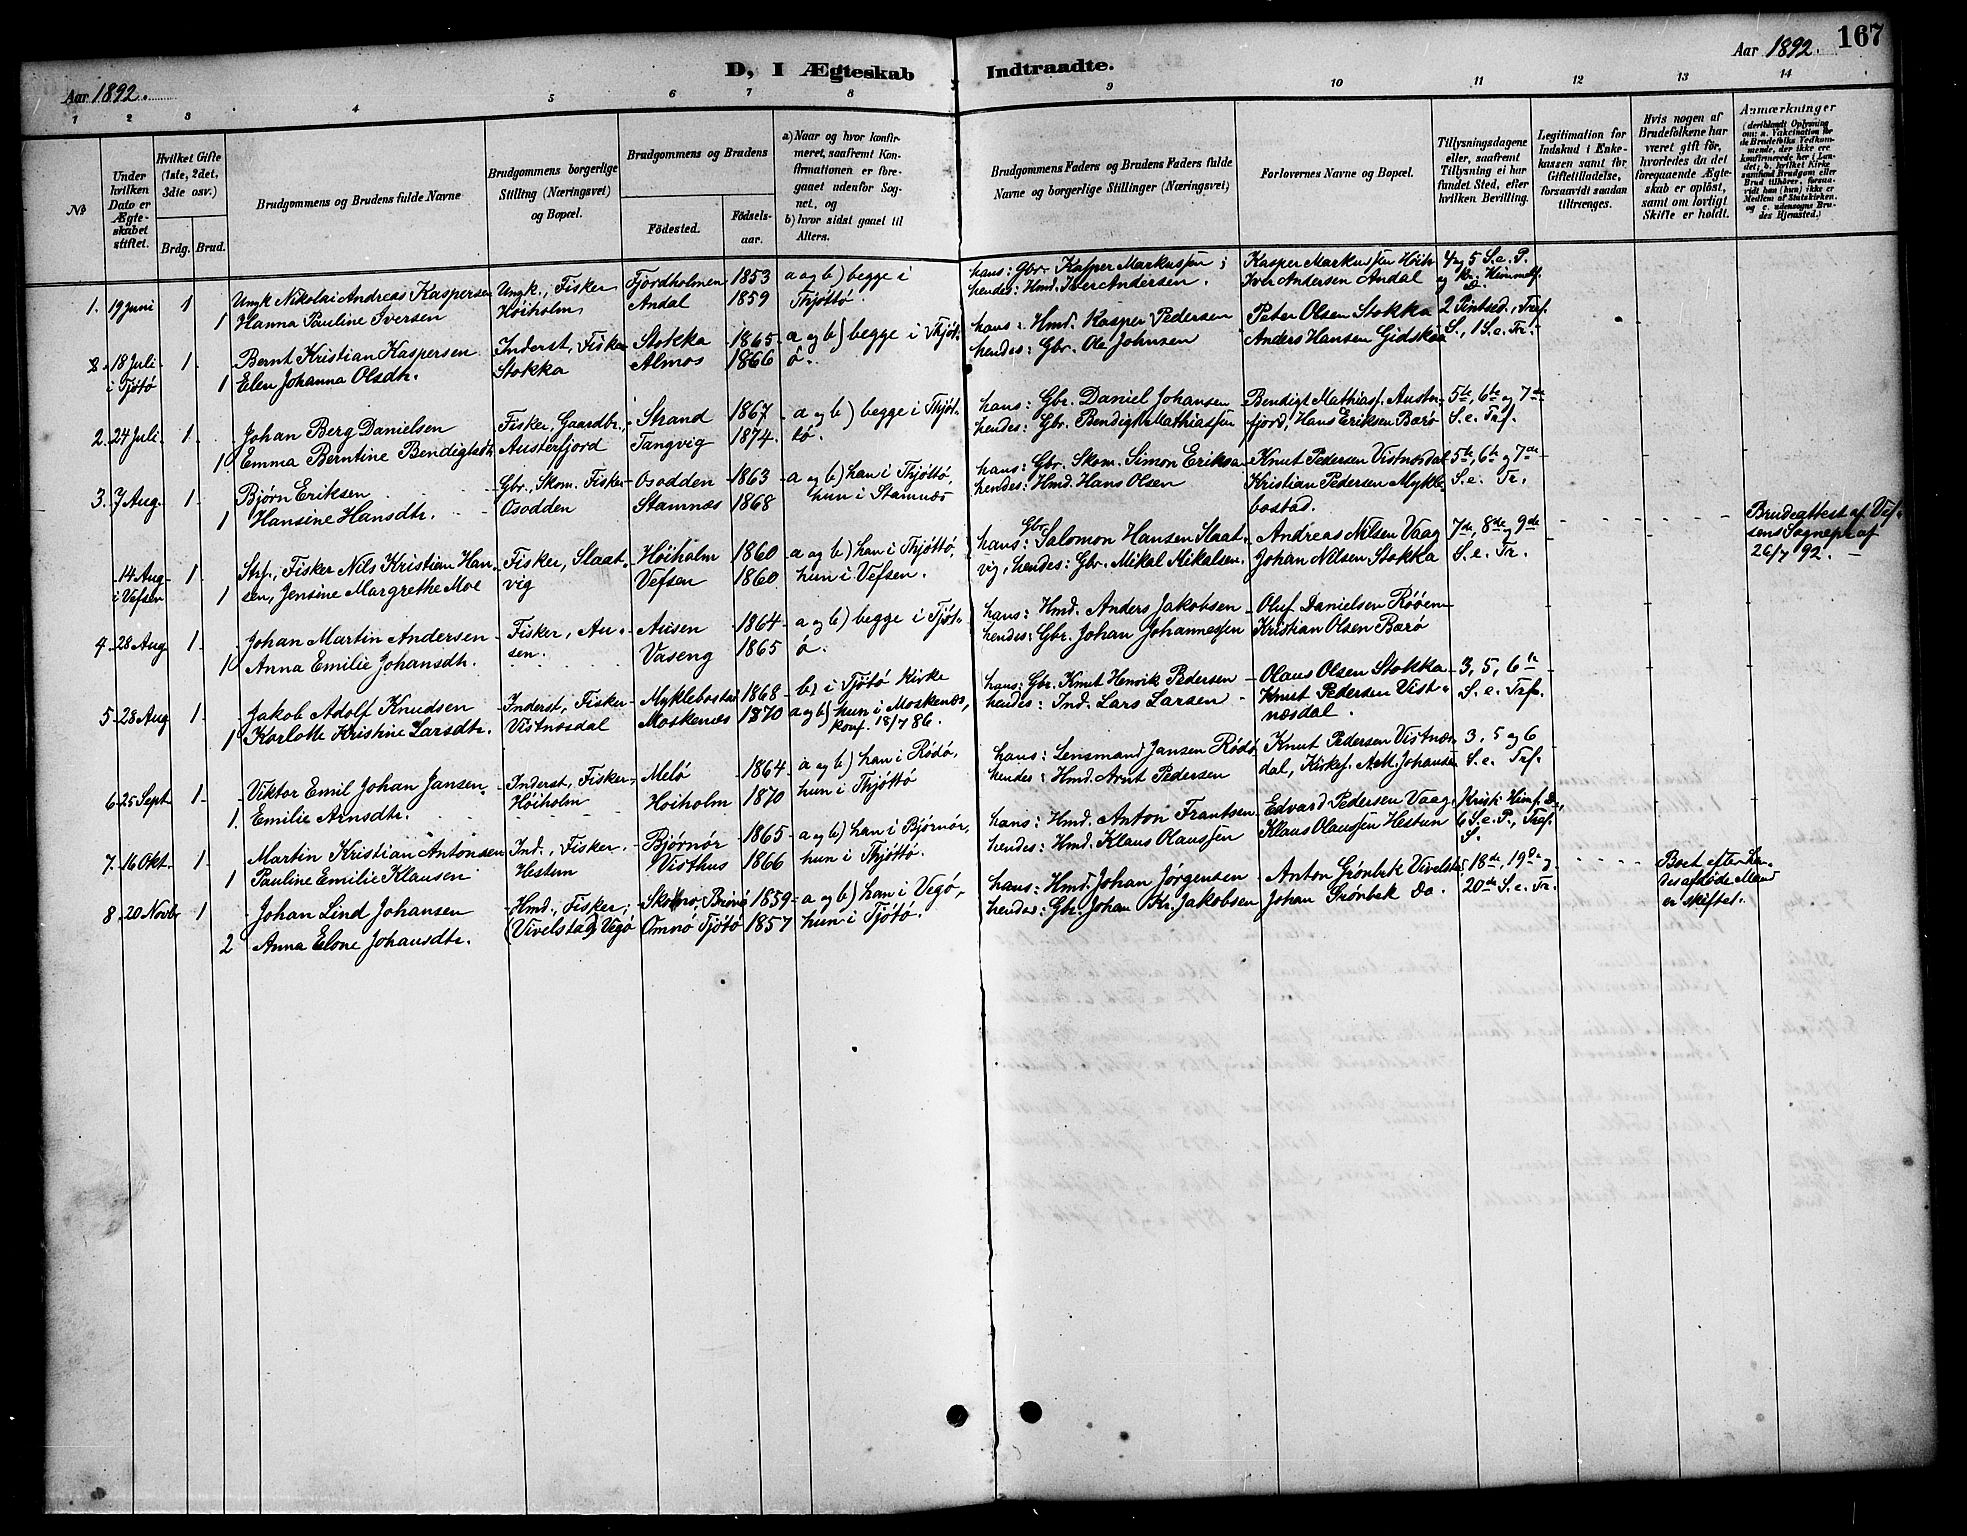 167
Aar 1892.
D, I Ægteskab Indtraadte.
Aar 1892.
1 2 3 4 5 6 7 8 9 10 11 12 13 14
№
Under hvilken Dato er Ægteskabet stiftet.
Hvilket Gifte (1ste, 2det, 3die osv.)
Brdg. Brud.
Brudgommens og Brudens fulde Navne
Brudgommens borgerlige Stilling (Næringsvei) og Bopæl.
Brudgommens og Brudens
Födested.
Födsels-aar.
a) Naar og hvor konfirmeret, saafremt Konfirmationen er foregaaet udenfor Sognet, og
b) hvor sidst gaaet til Alters.
Brudgommens Faders og Brudens Faders fulde Navne og borgerlige Stillinger (Næringsvei)
Forlovernes Navne og Bopæl.
Tillysningsdagene eller, saafremt Tillysning ei har fundet Sted, efter hvilken Bevilling.
Legitimation for Indskud i Enkekassen samt for Giftetilladelse, forsaavidt saadan tiltrænges.
Hvis nogen af Brudefolkene har været gift för, hvorledes da det foregaaende Ægteskab er oplöst, samt om lovligt Skifte er holdt.
Anmærkninger
(deriblandt Oplysning om: a. Vakcination for de Brudefolks Vedkommende, der ikke ere konfirmerede her i Landet; b. hvilket Kirkesamfund Brudgom eller Brud tilhörer, forsaavidt han (hun) ikke er Medlem af Statskirken, og c. udensogns Brudes Hjemsted.)
1. 19 Juni 1 Ungk Nikolai Andreas Kaspersen Ungk., Fisker Fjordholmen 1853 a og b) begge i hans: Gbr. Kasper Markussen; Kasper Markussen Höih. 4 og 5 S. e. P.
1 Hanna Pauline Iversen Höiholm Andal 1859 Thjöttö. hendes: Hmd. Iver Andersen. Iver Andersen Andal
2. 18 Juli 1. Bernt Kristian Kaspersen Inderst, Fisker Stokka 1865 a og b) begge i Thjöt- hans: Hmd. Kasper Pedersen Peter Olsen Stokka 2 Pintsed., Tref.
i Tjötö 1 Elen Johanna Olsdtr. Stokka Almos 1866 ö. hendes: Gbr. Ole Johnsen Anders Hansen Gidskaa S., 1 S. e. Tr.
2. 24 Juli 1. Johan Berg Danielsen Fisker, Gaardbr., Strand 1867 a og b) begge i Thjöt- hans: Gbr. Daniel Johansen Bendigt Mathiasf. Auster- 5te, 6te og 7de
1 Emma Berntine Bendigtsdtr Austerfjord Tangvig 1874 tö. hendes: Gbr. Bendigt Mathiassen fjord, Hans Eriksen Barö S. e. Trf.
3. 7 Aug. 1. Björn Eriksen Gbr., Skom. Fisker Osodden 1863 a og b) han i Thjöttö, hans: Gbr. Skom. Simon Eriksen Knut Pedersen Vistnæsdal 5te, 6te og 7de
1 Hansine Hansdtr. Osodden Stamnæs 1868 hun i Stamnæs hendes: Hmd. Hans Olsen Kristian Pedersen Mykle- S. e. Tr.
bostad.
14 Aug 1 Strf., Fisker Nils Kristian Han- Fisker, Slaat- Höiholm 1860 a og b) han i Thjöttö, hans: Gbr. Salomon Hansen Slaat- Andreas Nilsen Vaag 7de, 8de og 9de Brudeattest af Vef-
i Vefsen 1 sen, Jensine Margrethe Moe vig Vefsen 1860 hun i Vefsen. vig, hendes: Gbr. Mikal Mikalsen. Johan Nilsen Stokka S. e. Tr. sens Sognepr. af
26/7 92.
4 28 Aug 1. Johan Martin Andersen Fisker, Au- Ausen 1864 a og b) begge i Tjöt- hans: Hmd. Anders Jakobsen Oluf Danielsen Rööen
1 Anna Emilie Johansdtr. sen. Vaseng 1865 ö. hendes: Gbr. Johan Johannessen Kristian Olsen Barö
5 28 Aug 1. Jakob Adolf Knudsen Inderst, Fisker Myklebostad 1868 b) i Tjötö Kirke hans: Gbr. Knut Henrik Pedersen Olaus Olsen Stokka 3, 5, 6te
1 Karlotte Kristine Larsdtr. Vistnæsdal Moskenæs 1870 a og b) hun i Moskenæs, konf. 18/7 86. hendes: Ind. Lars Larsen Knut Pedersen Vist- S. e. Trf.
næsdal.
6 25 Sept 1. Viktor Emil Johan Jansen. Inderst, Fisker, Melö 1864 a og b) han i Rödö, hans: Lensmand Jansen Rödö Knut Pedersen Vistnæs- 3, 5 og 6
1. Emilie Arnsdtr. Höiholm Höiholm 1870 hun i Thjöttö hendes: Hmd. Arnt Pedersen dal, Kirkes. A. M. Johansen S. e. Trf.
7. 16 Okt. 1 Martin Kristian Antonsen Ind., Fisker. Björnör 1865 a og b) han i Björnör, hans: Hmd. Anton Frantsen Edvard Pedersen Vaag Krist. Himf. D.,
1 Pauline Emilie Klausen Hestun Visthus 1866 hun i Thjöttö. hendes: Hmd. Klaus Olaussen Klaus Olaussen Hestun 6 S. e. P., Tref.
S.
8 20 Novbr 1 Johan Lind Johansen Hmd., Fisker; 1859 a og b) han i Vegö, hans: Hmd. Johan Jörgensen Anton Grönbek Vivelstad 18de, 19de og Boet efter hen-
2 Anna Elone Johansdtr. (Vivelstad) Vegö Omnö Tjötö 1857 hun i Tjötö. hendes: Gbr. Johan Kr. Jakobsen Johan Grönbek do. 20de S. e. Tr. des afdöde Mand
er skiftet.